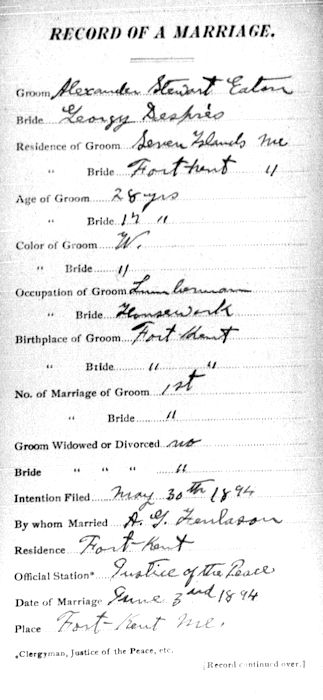 RECORD OF A MARRIAGE.
Groom Alexander Stewart Eaton
Bride Georgy Després
Residence of Groom Seven Islands Me
" Bride Fort Kent "
Age of Groom 28 yrs
" Bride 17 "
Color of Groom W.
" Bride "
Occupation of Groom Lumberman
" Bride Housework
Birthplace of Groom Fort Kent
" Bride " "
No. of Marriage of Groom 1st
" Bride "
Groom Widowed or Divorced no
Bride " " " "
Intention Filed May 30th 1894
By whom Married A. G. Fenlason
Residence Fort-Kent
Official Station* Justice of the Peace
Date of Marriage June 3rd 1894
Place Fort-Kent Me.
*Clergyman, Justice of the Peace, etc.
[Record continued over.]